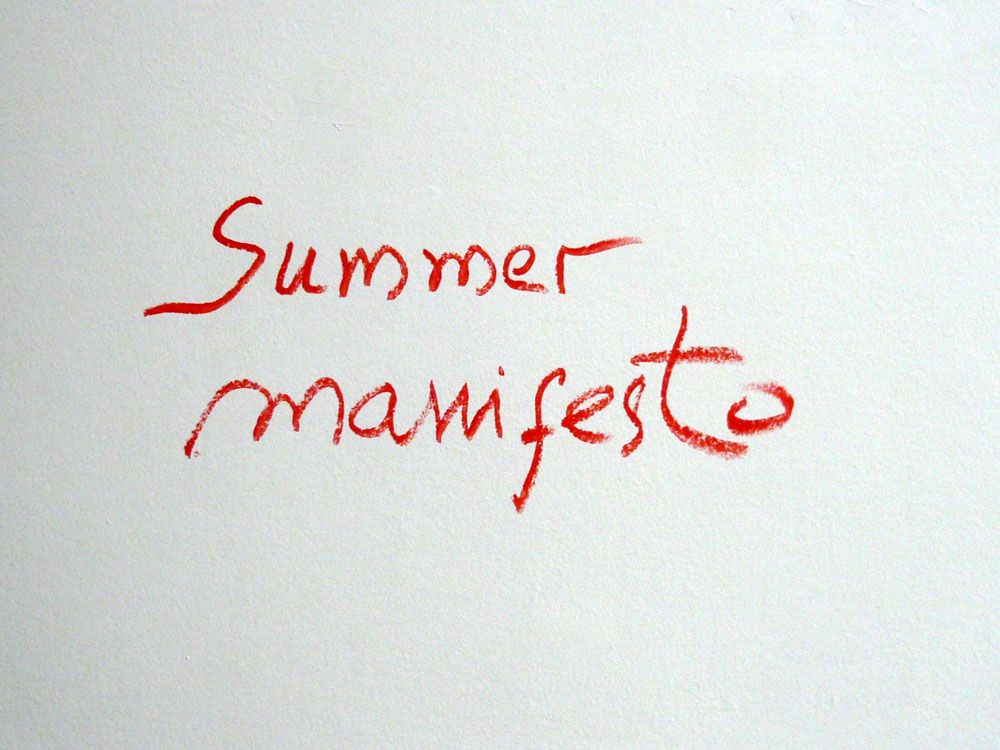 Summer
manifesto